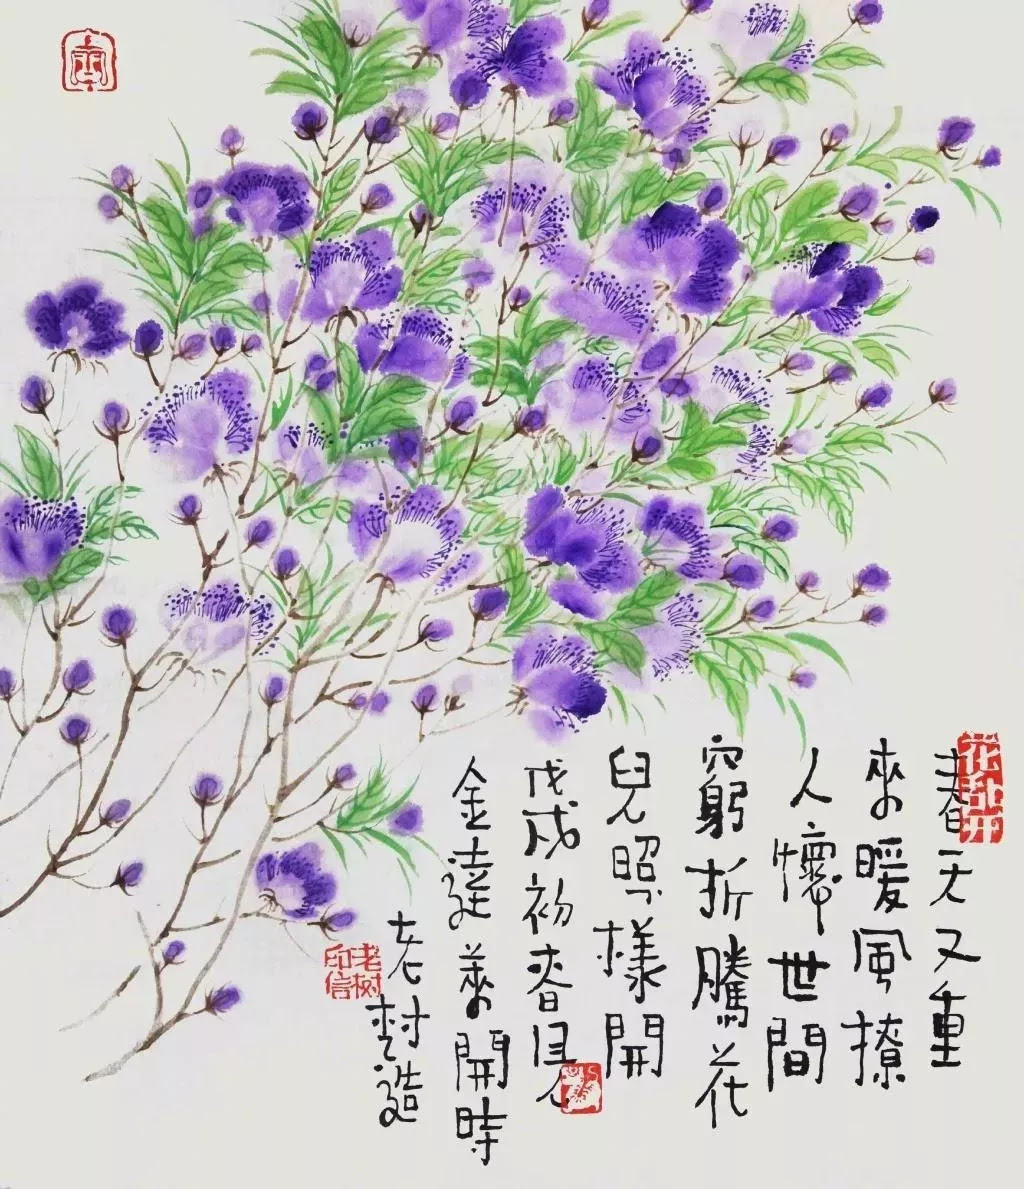 春天又重
來暖風撩
人懷世間
窮折騰花
兒照樣開
戊戌初春見
金達萊開時
老树造
老树印信